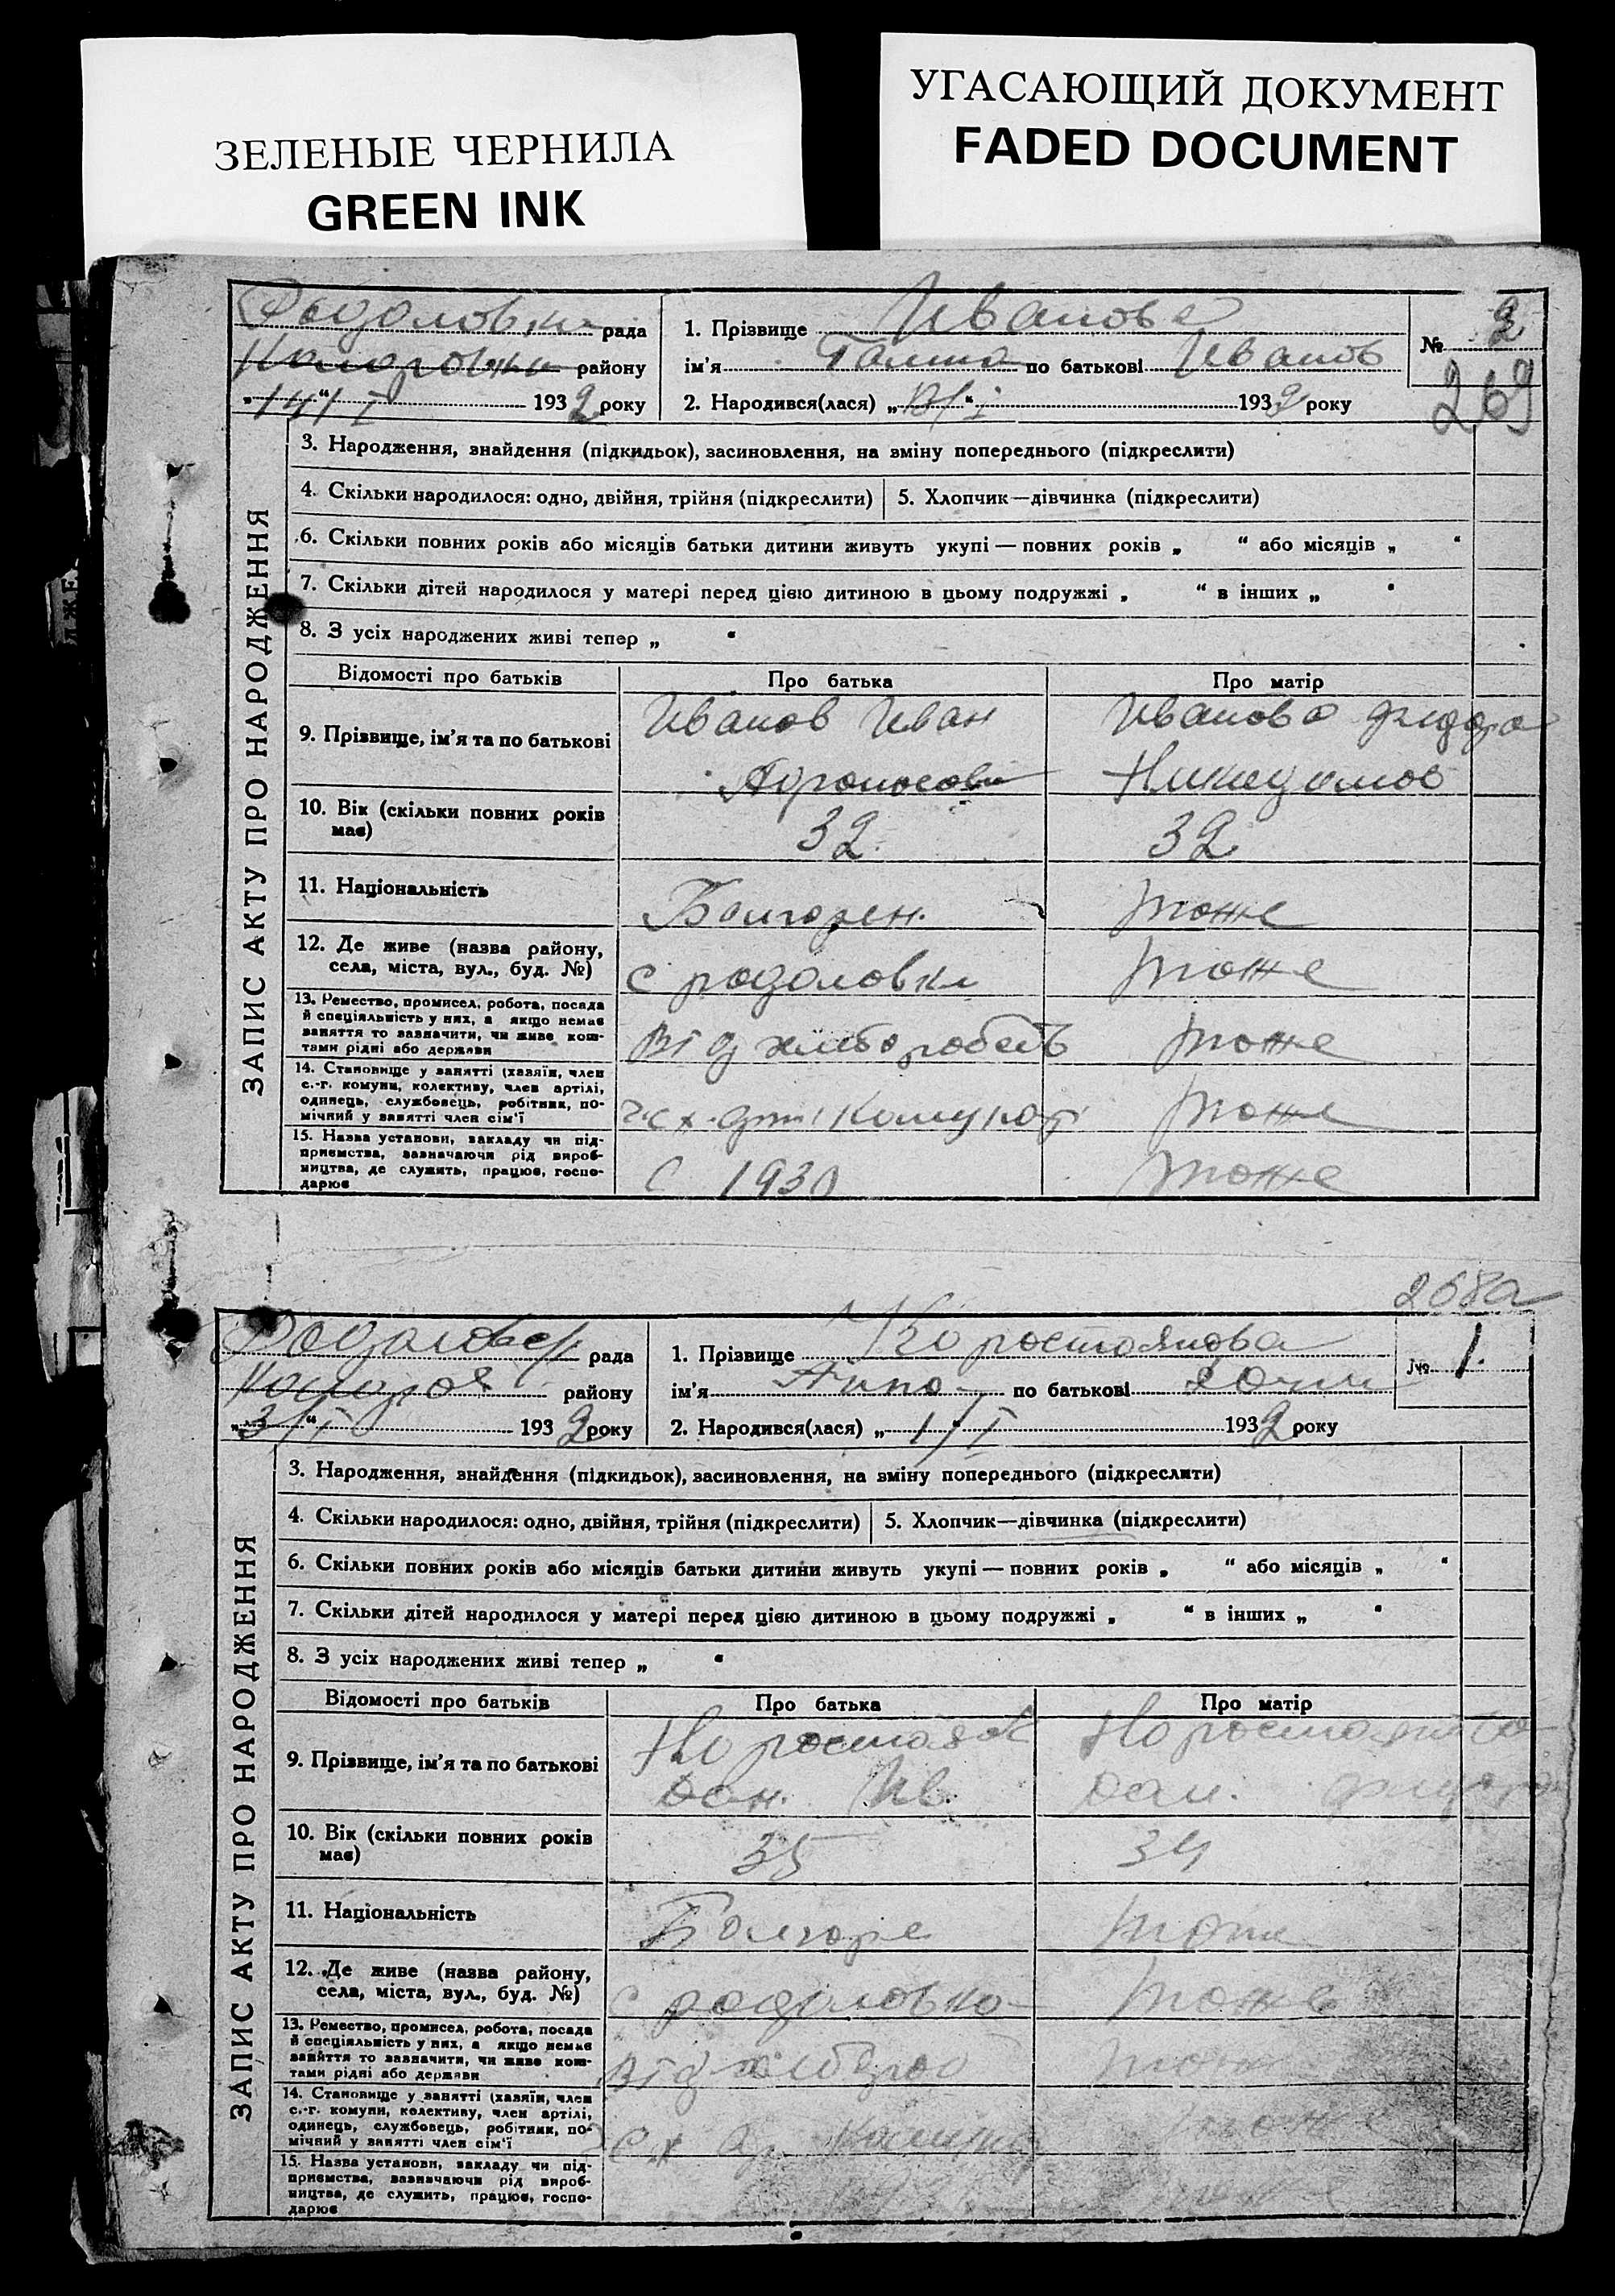 ЗЕЛЕНЫЕ ЧЕРНИЛА
GREEN INK
УГАСАЮЩИЙ ДОКУМЕНТ
FADED DOCUMENT
рада
району
"14" I 1932 року
1. Прізвище Иванова
ім'я Галина по батькові Иванов
2. Народився(лася) " I 1932 року
№ 2
269
ЗАПИС АКТУ ПРО НАРОДЖЕННЯ
3. Народження, знайдення (підкидьок), засиновлення, на зміну попереднього (підкреслити)
4. Скільки народилося: одно, двійня, трійня (підкреслити) 5. Хлопчик—дівчинка (підкреслити)
6. Скільки повних років або місяців батьки дитини живуть укупі — повних років „ “ або місяців „ “
7. Скільки дітей народилося у матері перед цією дитиною в цьому подружжі „ “ в інших „ “
8. З усіх народжених живі тепер „ “
Відомості про батьків Про батька Про матір
9. Прізвище, ім'я та по батькові
Иванов Иван
Иванова
10. Вік (скільки повних років
має)
32
32
11. Національність
Болгарен.
тоже
12. Де живе (назва району,
села, міста, вул., буд. №)
с родоловка
тоже
13. Ремество, промисел, робота, посада
й спеціяльність у них, а якщо немає
заняття то зазначити, чи живе кош-
тами рідні або держави
від хлібороб
тоже
14. Становище у занятті (хазяїн, член
с.-г. комуни, колективу, член артілі,
одинець, службовець, робітник, по-
мічний у занятті член сім'ї
тоже
15. Назва установи, закладу чи під-
приємства, зазначаючи рід вироб-
ництва, де служить, працює, госпо-
дарює
с 1930
тоже
268а
рада
району
"3" I 1932 року
1. Прізвище Коростоянова
ім'я Анна по батькові
2. Народився(лася) "1" I 1932 року
№ 1.
ЗАПИС АКТУ ПРО НАРОДЖЕННЯ
3. Народження, знайдення (підкидьок), засиновлення, на зміну попереднього (підкреслити)
4. Скільки народилося: одно, двійня, трійня (підкреслити) 5. Хлопчик—дівчинка (підкреслити)
6. Скільки повних років або місяців батьки дитини живуть укупі — повних років „ “ або місяців „ “
7. Скільки дітей народилося у матері перед цією дитиною в цьому подружжі „ “ в інших „ “
8. З усіх народжених живі тепер „ “
Відомості про батьків Про батька Про матір
9. Прізвище, ім'я та по батькові
Ив.
10. Вік (скільки повних років
має)
35
34
11. Національність
Болгаре
тоже
12. Де живе (назва району,
села, міста, вул., буд. №)
с родоловка
тоже
13. Ремество, промисел, робота, посада
й спеціяльність у них, а якщо немає
заняття то зазначити, чи живе кош-
тами рідні або держави
від
14. Становище у занятті (хазяїн, член
с.-г. комуни, колективу, член артілі,
одинець, службовець, робітник, по-
мічний у занятті член сім'ї
15. Назва установи, закладу чи під-
приємства, зазначаючи рід вироб-
ництва, де служить, працює, госпо-
дарює